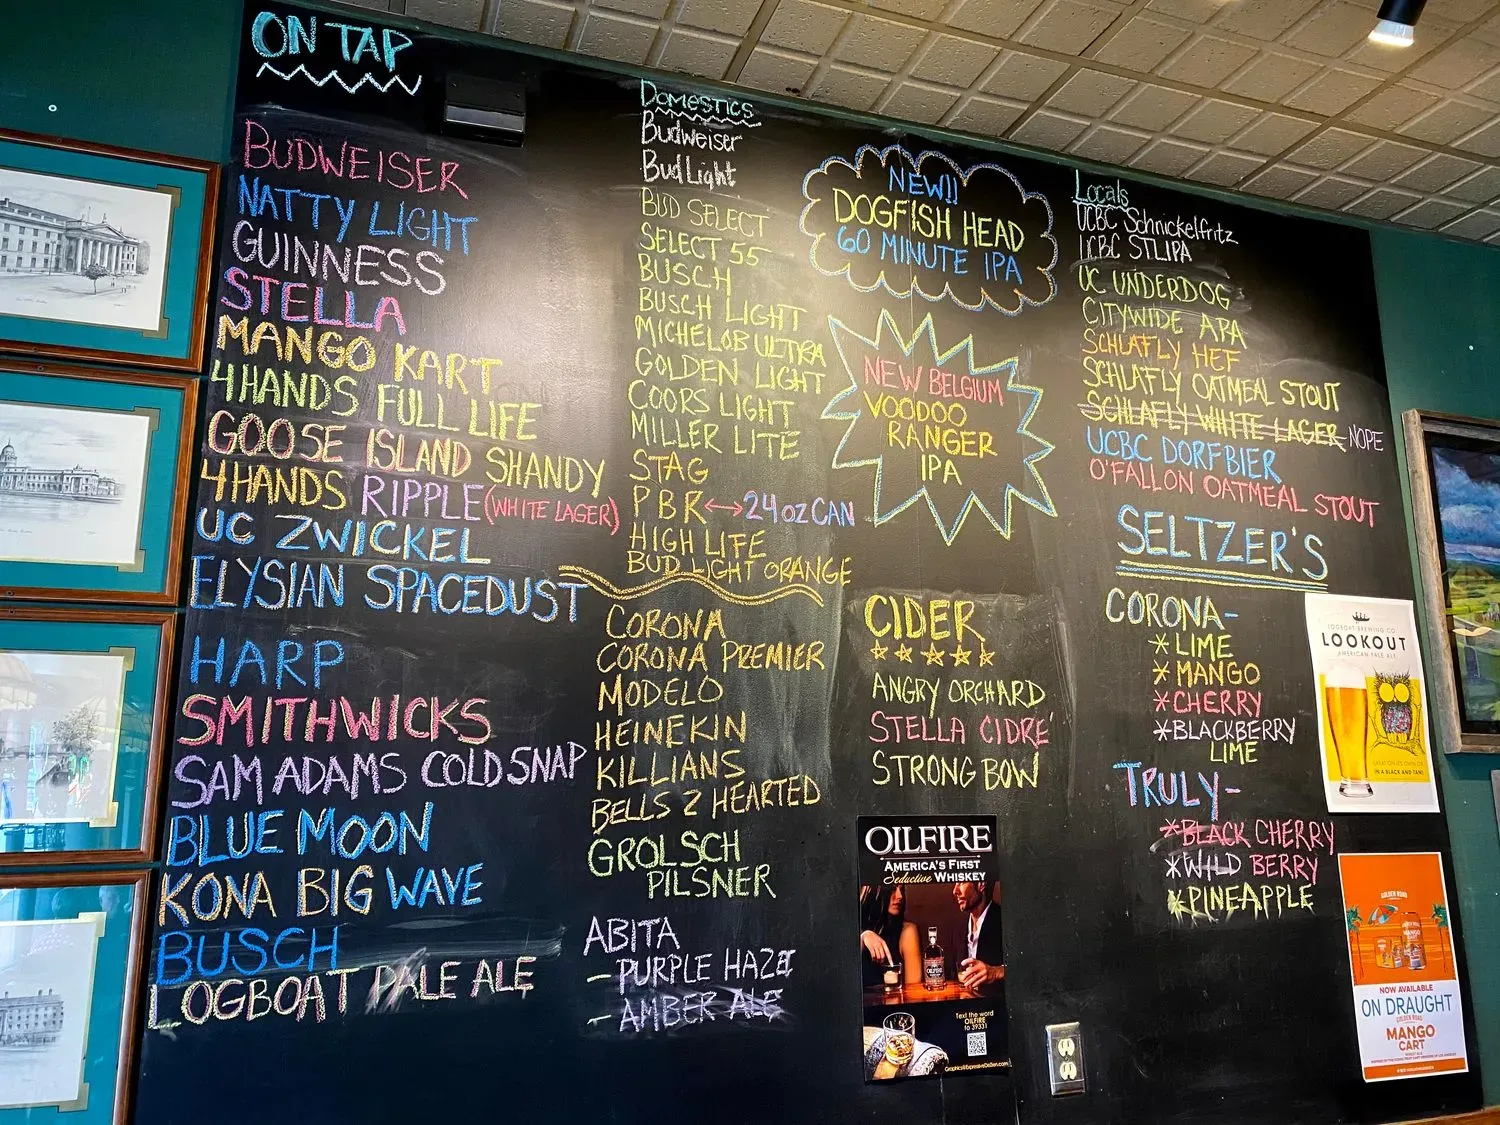 ON TAP
BUDWEISER
NATTY LIGHT
GUINNESS
STELLA
MANGO KART
4HANDS FULL LIFE
GOOSE ISLAND SHANDY
4HANDS RIPPLE (WHITE LAGER)
UC ZWICKEL
ELYSIAN SPACEDUST
HARP
SMITHWICKS
SAM ADAMS COLD SNAP
BLUE MOON
KONA BIG WAVE
BUSCH
LOGBOAT PALE ALE
DOMESTICS
Budweiser
Bud Light
BUD SELECT
SELECT 55
BUSCH
BUSCH LIGHT
MICHELOB ULTRA
GOLDEN LIGHT
COORS LIGHT
MILLER LITE
STAG
PBR ↔ 24 oz CAN
HIGH LIFE
BUD LIGHT ORANGE
CORONA
CORONA PREMIER
MODELO
HEINEKIN
KILLIANS
BELLS 2 HEARTED
GROLSCH
PILSNER
ABITA
- PURPLE HAZE
- AMBER ALE
NEW!!
DOGFISH HEAD
60 MINUTE IPA
NEW BELGIUM
VOODOO
RANGER
IPA
CIDER
ANGRY ORCHARD
STELLA CIDRÉ
STRONG BOW
OILFIRE
AMERICA'S FIRST
Seductive WHISKEY
Text the word
OILFIRE
to 39331
Locals
UCBC Schnickelfritz
UCBC STLIPA
UC UNDERDOG
CITYWIDE APA
SCHLAFLY HEF
SCHLAFLY OATMEAL STOUT
SCHLAFLY WHITE LAGER NOPE
UCBC DORFBIER
O'FALLON OATMEAL STOUT
SELTZER'S
CORONA-
*LIME
*MANGO
*CHERRY
*BLACKBERRY
LIME
TRULY-
*BLACK CHERRY
*WILD BERRY
*PINEAPPLE
LOGBOAT BREWING CO.
LOOKOUT
AMERICAN PALE ALE
GOLDEN ROAD
NOW AVAILABLE
ON DRAUGHT
GOLDEN ROAD
MANGO
CART